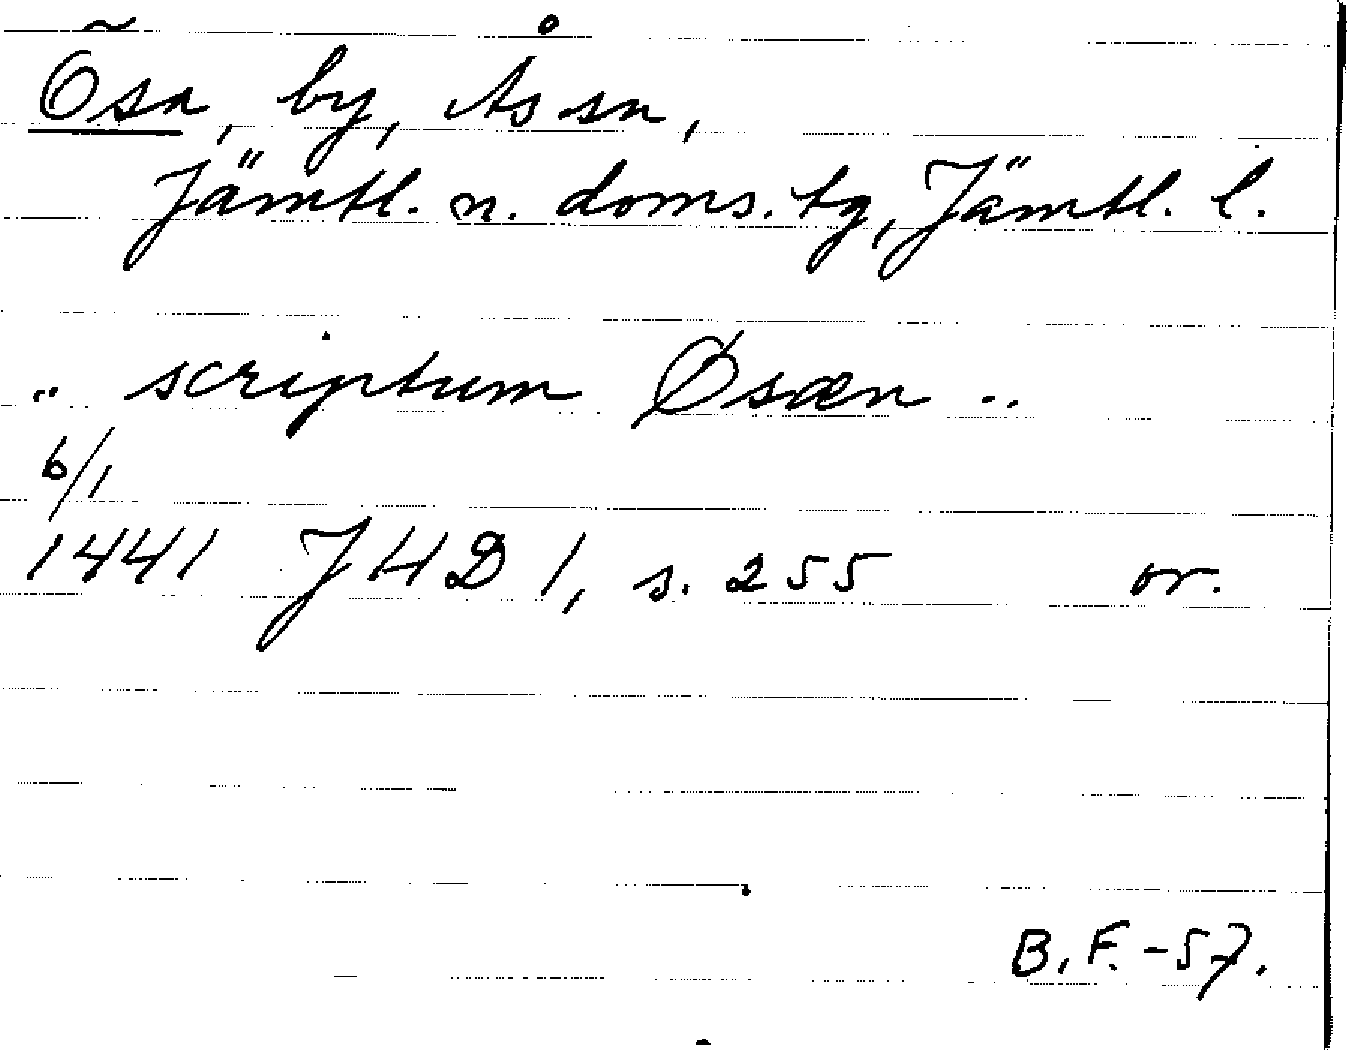 Ösa, by, Ås sn,
Jämtl. n. doms. tg, Jämtl. l.
.. scriptum Øsæn ..
6/1
1441 JHD 1, s. 255 or.
B.F. -57.